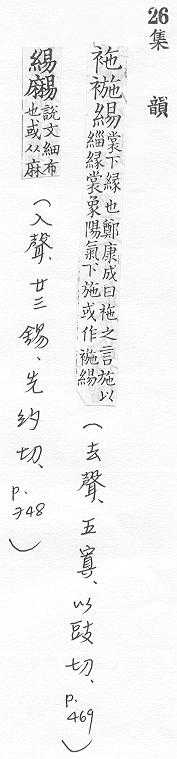 26 集 韻
袘緆裳下緣也鄭康成曰袘之言施以
緇緣裳象陽氣下施或作緆
(去聲、五寘、以豉切、p.469)
緆說文細布
也或从麻
(入聲、廿三錫、先約切、p.748)